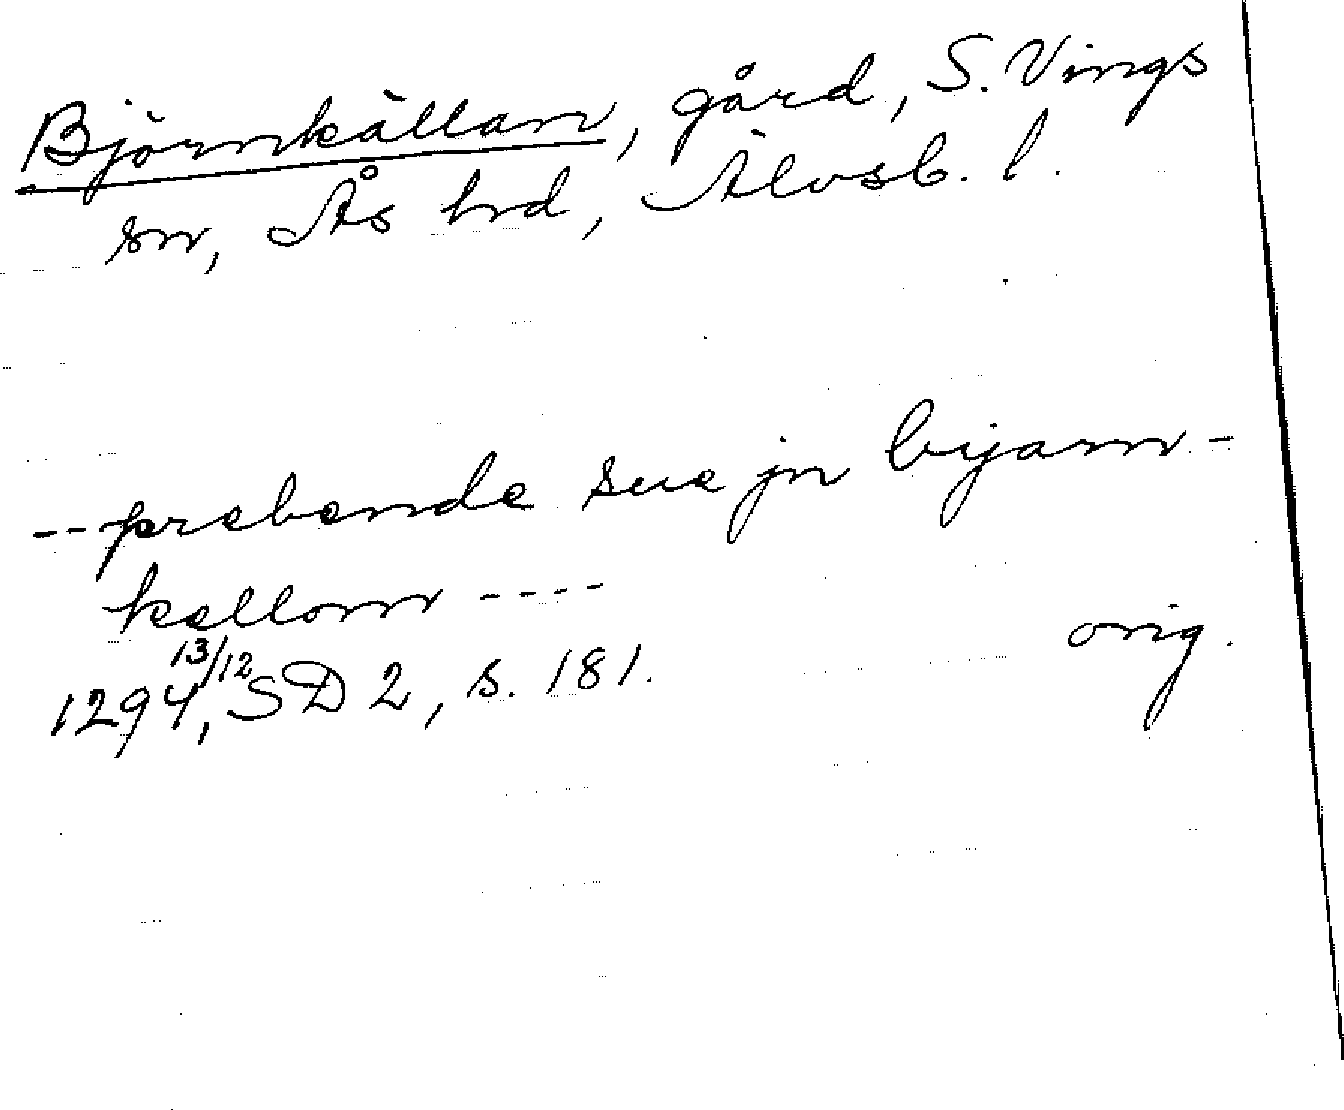 Björnkällan, gård, S. Vings
sn, Ås hrd, Älvsb. l.
-- prebende sue jn byarn-
kellom ----
1294 13/12, SD 2, s. 181. orig.